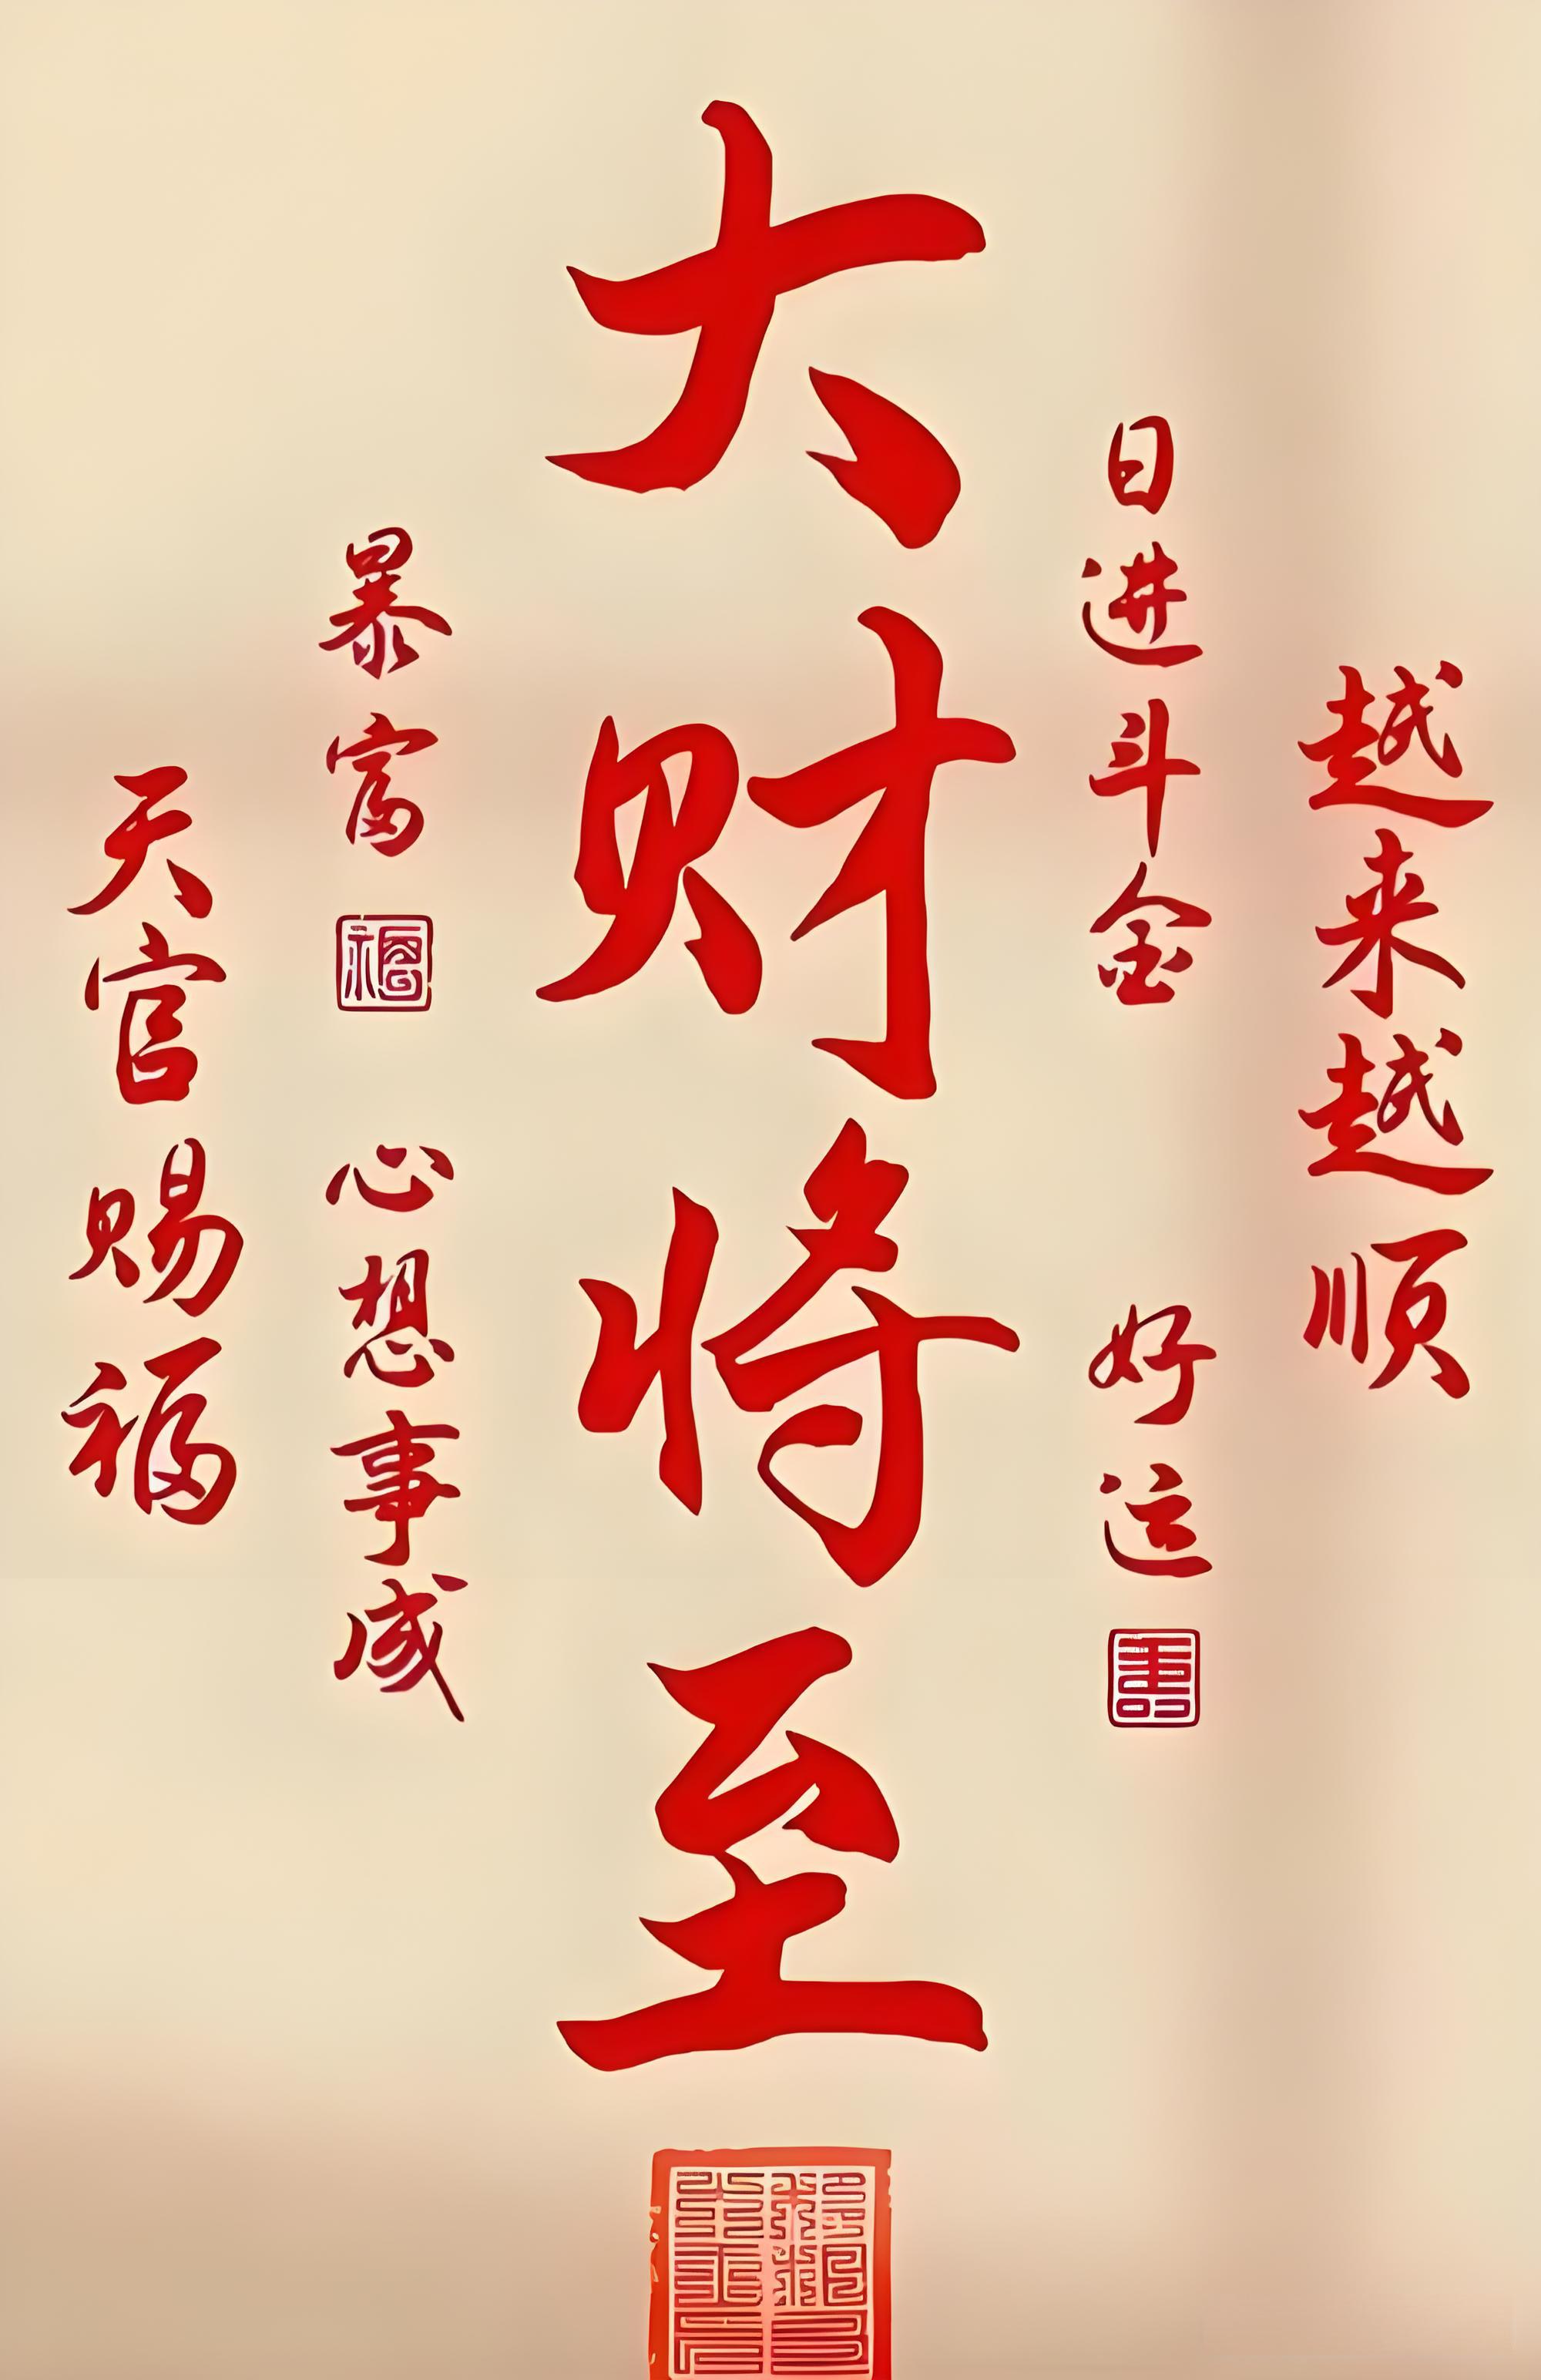 越来越顺
日进斗金
好运
大财将至
暴富
心想事成
天官赐福